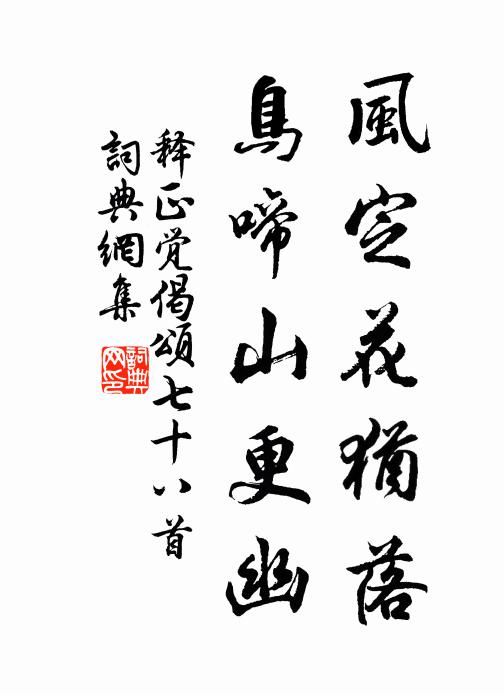 風定花猶落
鳥啼山更幽
释正觉偈頌七十八首
詞典網集
詞典
网印